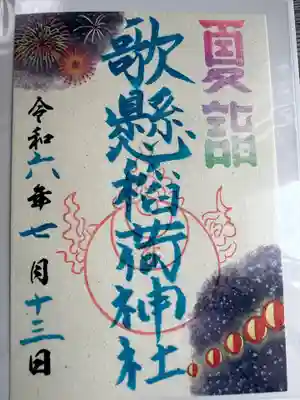 夏詣
歌懸稲荷神社
令和六年七月十三日